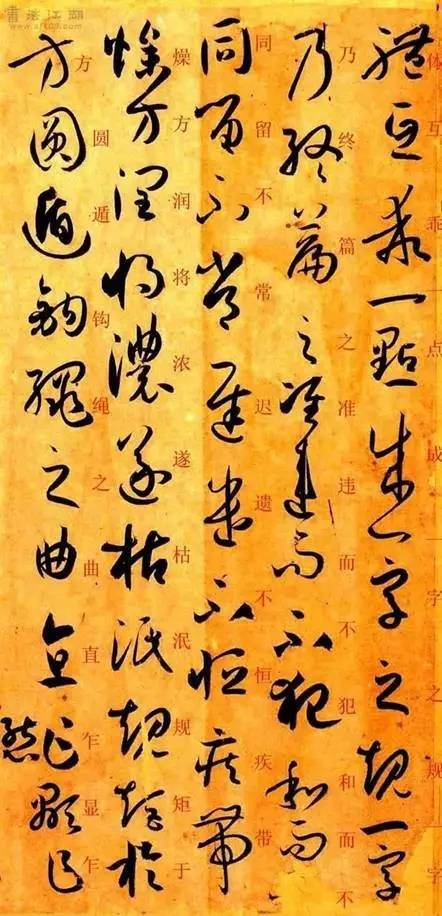 書法江湖
體互乖一點成一字之規一字
体互乖一点成一字之规一字
乃終篇之准違而不犯和而
乃终篇之准违而不犯和而不
同留不常遲遣不恒疾帶
同留不常迟遗不恒疾带
燥方潤將濃遂枯泯規矩於
燥方润将浓遂枯泯规矩于
方圓遁鉤繩之曲直乍顯乍
方圆遁钩绳之曲直乍显乍